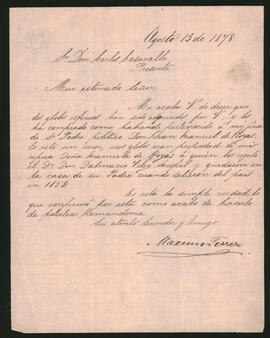 Agosto 13 de 1878.
Sr. Don Carlos Casavalle
Presente
Muy estimado Señor.
Me acaba V. de decir que
dos globos esféricos han sido adquiridos por V. y los
ha comprado como habiendo pertenecido a
Sr. Padre político Don Juan Manuel de Rosas
en este un error, esos globos son propiedad de mi
esposa Doña Manuela de Rosas a quien los regaló
el Dr. Don Dalmacio Velez Sarsfield, y quedaron en
la casa de su Padre cuando salieron del país
en 1852.
Es esta la simple verdad, lo
que confirmo por esta como acabo de hacerlo
de palabra llamandome
Su atento Servidor y Amigo
Maximo Terrero